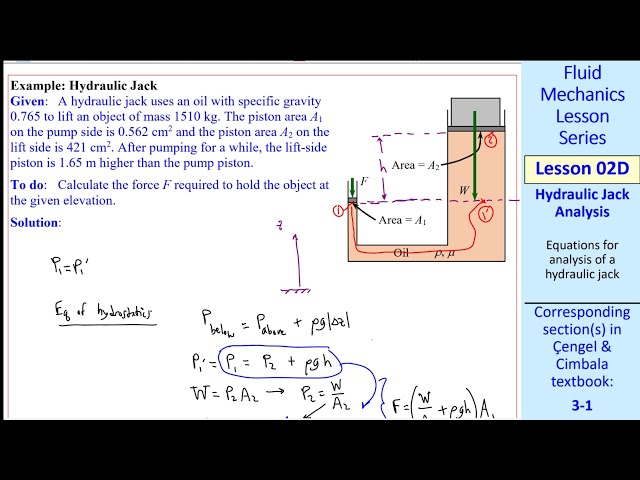 Example: Hydraulic Jack
Given: A hydraulic jack uses an oil with specific gravity
0.765 to lift an object of mass 1510 kg. The piston area A₁
on the pump side is 0.562 cm² and the piston area A₂ on the
lift side is 421 cm². After pumping for a while, the lift-side
piston is 1.65 m higher than the pump piston.
To do: Calculate the force F required to hold the object at
the given elevation.
Solution:
F
h
Area = A₂
2
W
1
Area = A₁
1'
Oil
ρ, μ
z
P₁ = P₁'
Eq of hydrostatics
P below = P above + ρg|Δz|
P₁' = P₁ = P₂ + ρgh
W = P₂A₂ → P₂ = W/A₂
F = (W/A + ρgh) A₁
Fluid
Mechanics
Lesson
Series
Lesson 02D
Hydraulic Jack
Analysis
Equations for
analysis of a
hydraulic jack
Corresponding
section(s) in
Çengel &
Cimbala
textbook:
3-1